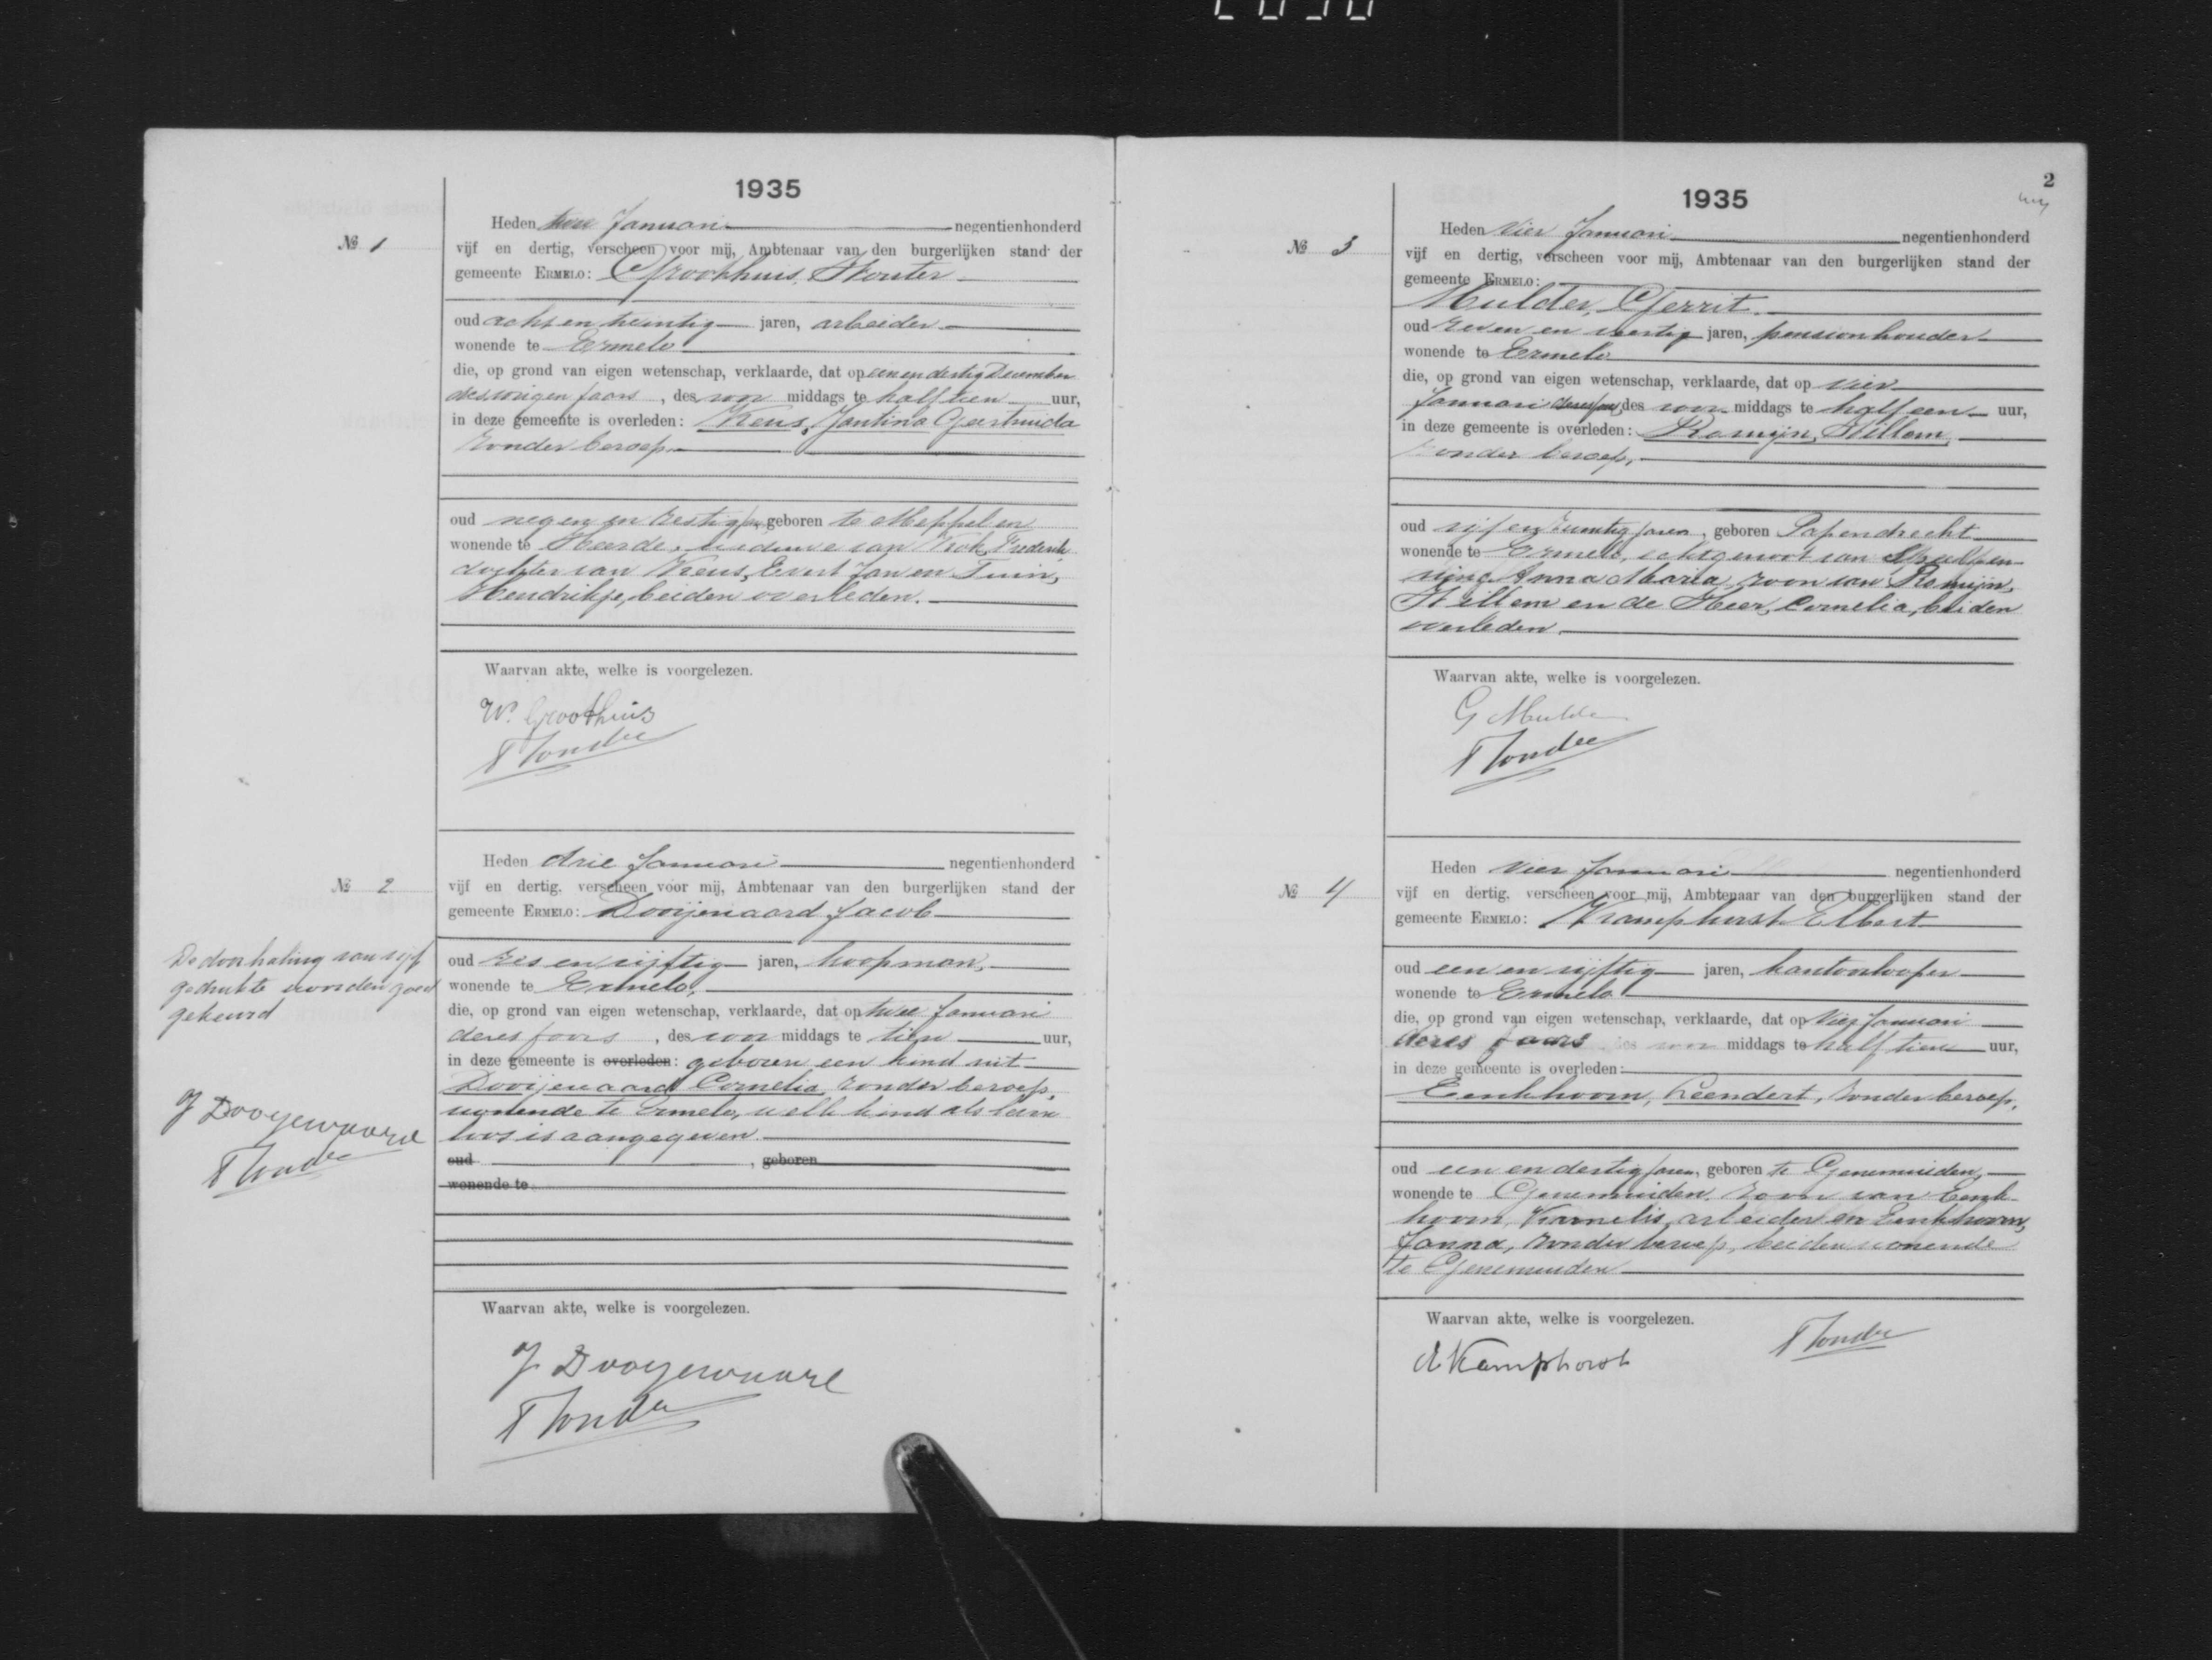 1935
№ 1
Heden twee Januari negentienhonderd
vijf en dertig, verscheen voor mij, Ambtenaar van den burgerlijken stand der
gemeente ERMELO: Groothuis, Wouter
oud acht en twintig jaren, arbeider
wonende te Ermelo
die, op grond van eigen wetenschap, verklaarde, dat op een en dertig December
des vorigen jaars, des voor middags te half tien uur,
in deze gemeente is overleden: Keus, Jantina Geertruida
zonder beroep
oud negen en zestig jaren, geboren te Meppel en
wonende te Heerde, weduwe van Kok, Frederik
dochter van Keus, Evert Jan en Tuin,
Hendrikje, beiden overleden.
Waarvan akte, welke is voorgelezen.
W. Groothuis
№ 2
Heden drie Januari negentienhonderd
vijf en dertig, verscheen voor mij, Ambtenaar van den burgerlijken stand der
gemeente ERMELO: Dooijewaard Jacob
oud zes en vijftig jaren, koopman,
wonende te Ermelo,
die, op grond van eigen wetenschap, verklaarde, dat op twee Januari
dezes jaars, des voor middags te tien uur,
in deze gemeente is overleden: geboren een kind uit
Dooijewaard Cornelia, zonder beroep,
wonende te Ermelo, welk kind als leven
loos is aangegeven
oud , geboren
wonende te
Waarvan akte, welke is voorgelezen.
J Dooyewaard
De doorhaling van vijf
gedrukte woorden goed
gekeurd
J Dooyewaard
2
1935
№ 3
Heden vier Januari negentienhonderd
vijf en dertig, verscheen voor mij, Ambtenaar van den burgerlijken stand der
gemeente ERMELO:
Mulder, Gerrit
oud zeven en veertig jaren, pensionhouder
wonende te Ermelo
die, op grond van eigen wetenschap, verklaarde, dat op vier
Januari dezes jaars, des voor middags te half een uur,
in deze gemeente is overleden: Romijn, Willem,
zonder beroep,
oud vijf en twintig jaren, geboren Papendrecht
wonende te Ermelo, echtgenoot van
Anna Maria, zoon van Romijn,
Willem en de Heer, Cornelia, beiden
overleden.
Waarvan akte, welke is voorgelezen.
G Mulder
№ 4
Heden vier Januari negentienhonderd
vijf en dertig, verscheen voor mij, Ambtenaar van den burgerlijken stand der
gemeente ERMELO: Kramphorst Elbert
oud een en vijftig jaren, kantoorlooper
wonende te Ermelo
die, op grond van eigen wetenschap, verklaarde, dat op vier Januari
dezes jaars des voor middags te half tien uur,
in deze gemeente is overleden:
Eenkhoorn, Leendert, zonder beroep,
oud een en dertig jaren, geboren te Genemuiden,
wonende te Genemuiden. zoon van Eenk-
hoorn, Kornelis, arbeider en Eenkhoorn,
Janna, zonder beroep, beiden wonende
te Genemuiden
Waarvan akte, welke is voorgelezen.
E Kamphorst